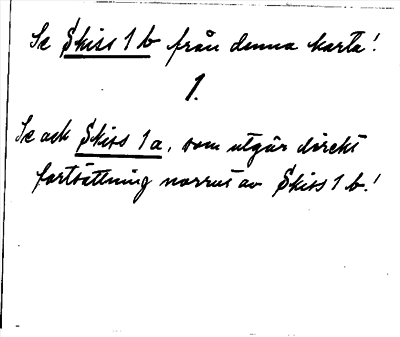 Se Skiss 1 b från denna karta!
1.
Se ock Skiss 1 a, som utgör direkt
fortsättning norrut av Skiss 1 b.!